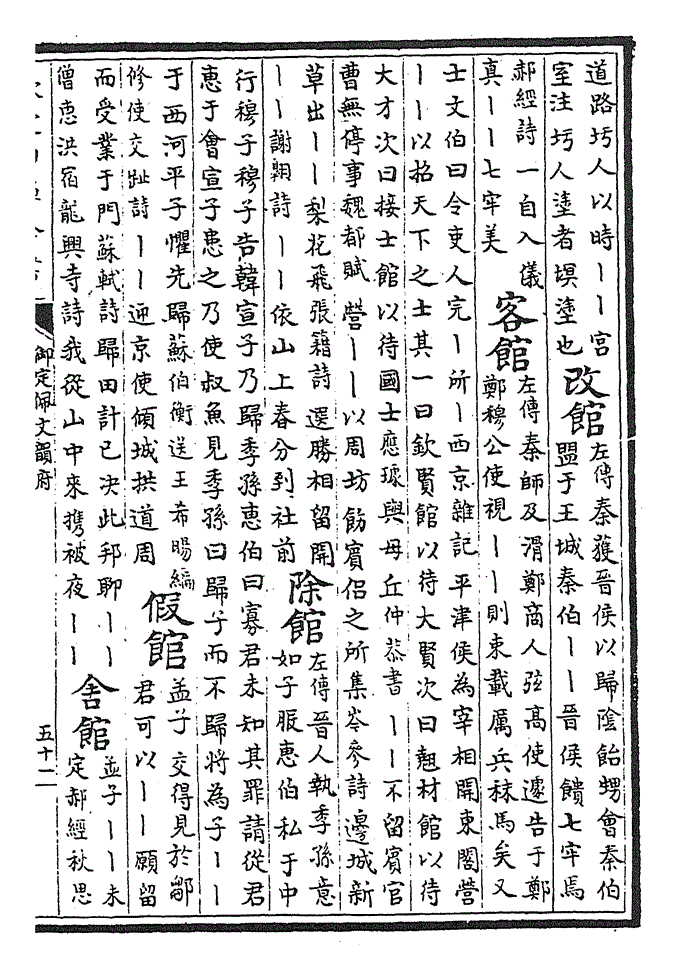 道路圬人以時丨丨宮
室注圬人塗者塓塗也
改館
左傳秦獲晉侯以歸陰飴甥會秦伯
盟于王城秦伯丨丨晉侯饋七牢焉
郝經詩一自入儀
真丨丨七牢美
客館
左傳秦師及滑鄭商人弦高使遽告于鄭
鄭穆公使視丨丨則束載厲兵秣馬矣又
士文伯曰令吏人完丨所丨西京雜記平津侯為宰相開東閤營
丨丨以招天下之士其一曰欽賢館以待大賢次曰翹材館以待
大才次曰接士館以待國士應璩與毋丘仲恭書丨丨不留賓官
曹無停事魏都賦營丨丨以周坊飭賓侶之所集岑參詩邊城新
草出丨丨梨花飛張籍詩選勝相留開
丨丨謝翱詩丨丨依山上春分到社前
除館
左傳晉人執季孫意
如子服惠伯私于中
行穆子穆子告韓宣子乃歸季孫惠伯曰寡君未知其罪請從君
惠于會宣子患之乃使叔魚見季孫曰歸子而不歸將為子丨丨
于西河平子懼先歸蘇伯衡送王希暘編
修使交趾詩丨丨迎京使傾城拱道周
假館
孟子交得見於鄒
君可以丨丨願留
而受業于門蘇軾詩歸田計已決此邦聊丨丨
僧惠洪宿龍興寺詩我從山中來攜被夜丨丨
舍館
孟子丨丨未
定郝經秋思
御定佩文韻府
五十二